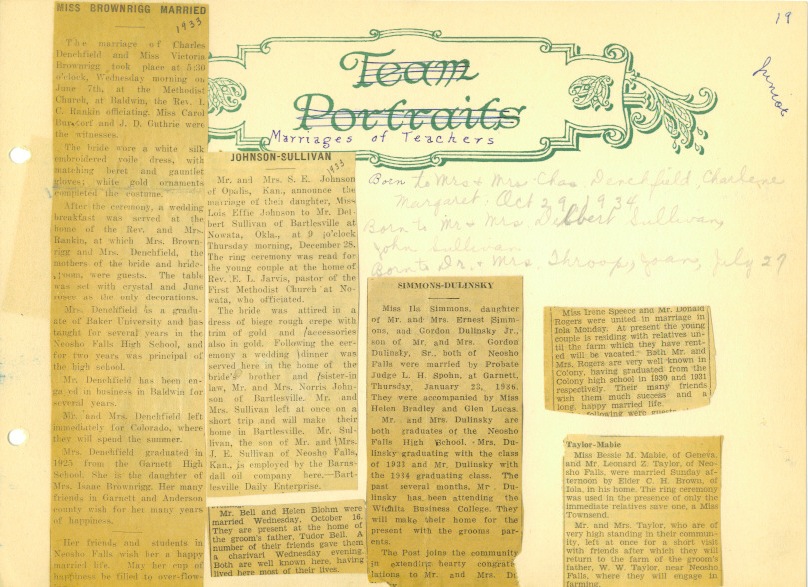 MISS BROWNRIGG MARRIED
1933
The marriage of Charles
Denchfield and Miss Victoria
Brownrigg took place at 5:30
o'clock, Wednesday morning on
June 7th, at the Methodist
Church, at Baldwin, the Rev. I.
C. Rankin officiating. Miss Carol
and J. D. Guthrie were
the witnesses.
The bride wore a white silk
embroidered voile dress, with
matching beret and gauntlet
gloves; white gold ornaments
completed the costume.
After the ceremony, a wedding
breakfast was served at the
home of the Rev. and Mrs.
Rankin, at which Mrs. Brown-
rigg and Mrs. Denchfield, the
mothers of the bride and bride-
groom, were guests. The table
was set with crystal and June
roses as the only decorations.
Mrs. Denchfield is a gradu-
ate of Baker University and has
taught for several years in the
Neosho Falls High School, and
for two years was principal of
the high school.
Mr. Denchfield has been en-
gaged in business in Baldwin for
several years.
Mr. and Mrs. Denchfield left
immediately for Colorado, where
they will spend the summer.
Mrs. Denchfield graduated in
1925 from the Garnett High
School. She is the daughter of
Mrs. Isaac Brownrigg. Her many
friends in Garnett and Anderson
county wish for her many years
of happiness.
Her friends and students in
Neosho Falls wish her a happy
married life. May her cup of
happiness be filled to over-flow-
19
Junior
Team
Portraits
Marriages of Teachers
Born to Mr & Mrs Chas Denchfield, Charlene
Margaret, Oct 29, 1934
Born to Mr & Mrs. Delbert Sullivan,
John Sullivan
Born to Dr. & Mrs. Throop, Joan, July 27
JOHNSON-SULLIVAN
1933
Mr. and Mrs. S. E. Johnson
of Opalis, Kan., announce the
marriage of their daughter, Miss
Lois Effie Johnson to Mr. Del-
bert Sullivan of Bartlesville at
Nowata, Okla., at 9 o'clock
Thursday morning, December 28.
The ring ceremony was read for
the young couple at the home of
Rev. E. L. Jarvis, pastor of the
First Methodist Church at No-
wata, who officiated.
The bride was attired in a
dress of biege rough crepe with
trim of gold and accessories
also in gold. Following the cer-
emony a wedding dinner was
served here in the home of the
bride's brother and sister-in
law, Mr. and Mrs. Norris John-
son of Bartlesville. Mr. and
Mrs. Sullivan left at once on a
short trip and will make their
home in Bartlesville. Mr. Sul-
livan, the son of Mr. and Mrs.
J. E. Sullivan of Neosho Falls,
Kan., is employed by the Barns-
dall oil company here.—Bart-
lesville Daily Enterprise.
Mr. Bell and Helen Blohm were
married Wednesday, October 16.
They are present at the home of
the groom's father, Tudor Bell. A
number of their friends gave them
a charivari Wednesday evening.
Both are well known here, having
lived here most of their lives.
SIMMONS-DULINSKY
Miss Ila Simmons, daughter
of Mr. and Mrs. Ernest Simm-
ons, and Gordon Dulinsky Jr.,
son of Mr. and Mrs. Gordon
Dulinsky, Sr., both of Neosho
Falls were married by Probate
Judge L. H. Spohn, at Garnett,
Thursday, January 23, 1936.
They were accompanied by Miss
Helen Bradley and Glen Lucas.
Mr. and Mrs. Dulinsky are
both graduates of the Neosho
Falls High School. Mrs. Du-
linsky graduating with the class
of 1931 and Mr. Dulinsky with
the 1934 graduating class. The
past several months, Mr. Du-
linsky has been attending the
Wichita Business College. They
will make their home for the
present with the grooms par-
ents.
The Post joins the community
in extending hearty congrat-
lations to Mr. and Mrs.
Miss Irene Speece and Mr. Donald
Rogers were united in marriage in
Iola Monday. At present the young
couple is residing with relatives un-
til the farm which they have rent-
ed will be vacated. Both Mr. and
Mrs. Rogers are very well known in
Colony, having graduated from the
Colony high school in 1930 and 1931
respectively. Their many friends
wish them much success and a
long, happy married life.
following were guests
Taylor-Mabie
Miss Bessie M. Mabie, of Geneva,
and Mr. Leonard Z. Taylor, of Neo-
sho Falls, were married Sunday af-
ternoon by Elder C. H. Brown, of
Iola, in his home. The ring ceremony
was used in the presence of only the
immediate relatives save one, a Miss
Townsend.
Mr. and Mrs. Taylor, who are of
very high standing in their commun-
ity, left at once for a short visit
with friends after which they will
return to the farm of the groom's
father, W. W. Taylor, near Neosho
Falls, where they will engage in
farming.